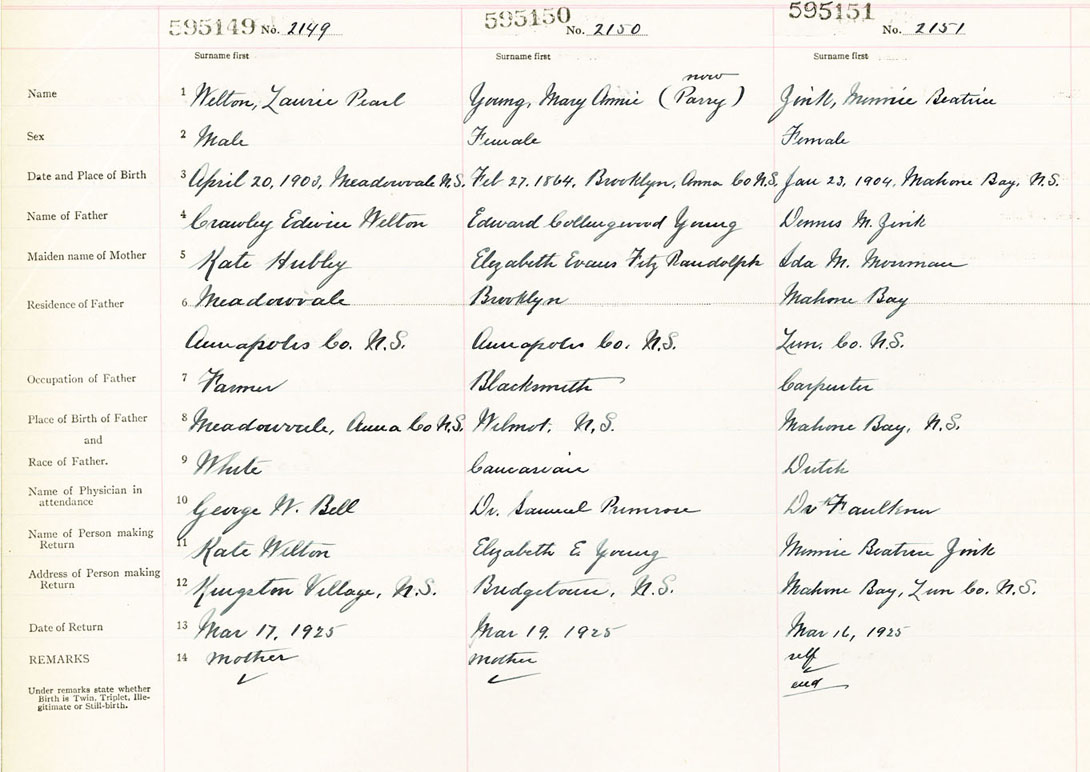 595149 No. 2149 595150 No. 2150 595151 No. 2151
Surname first Surname first Surname first
now
Name 1 Welton, Laurie Pearl Young, Mary Annie (Parry) Zink, Minnie Beatrice
Sex 2 Male Female Female
Date and Place of Birth 3 April 20, 1903, Meadowvale N.S. Feb 27. 1864, Brooklyn, Anna Co N.S. Jan 23, 1904, Mahone Bay, N.S.
Name of Father 4 Crawley Edwin Welton Edward Collingwood Young Dennis M. Zink
Maiden name of Mother 5 Kate Hubley Elizabeth Evans Fitz Randolph Ida M. Mosman
Residence of Father 6 Meadowvale Brooklyn Mahone Bay
Annapolis Co. N.S. Annapolis Co. N.S. Lun. Co. N.S.
Occupation of Father 7 Farmer Blacksmith Carpenter
Place of Birth of Father 8 Meadowvale, Anna Co N.S. Wilmot, N.S. Mahone Bay, N.S.
and
Race of Father. 9 White Caucasian Dutch
Name of Physician in
attendance 10 George W. Bell Dr. Samuel Primrose Dr Faulkner
Name of Person making
Return 11 Kate Welton Elizabeth E Young Minnie Beatrice Zink
Address of Person making
Return 12 Kingston Village, N.S. Bridgetown, N.S. Mahone Bay, Lun Co. N.S.
Date of Return 13 Mar 17, 1925 Mar 19, 1925 Mar 16, 1925
REMARKS 14 mother mother self
end
Under remarks state whether
Birth is Twin, Triplet, Ille-
gitimate or Still-birth.